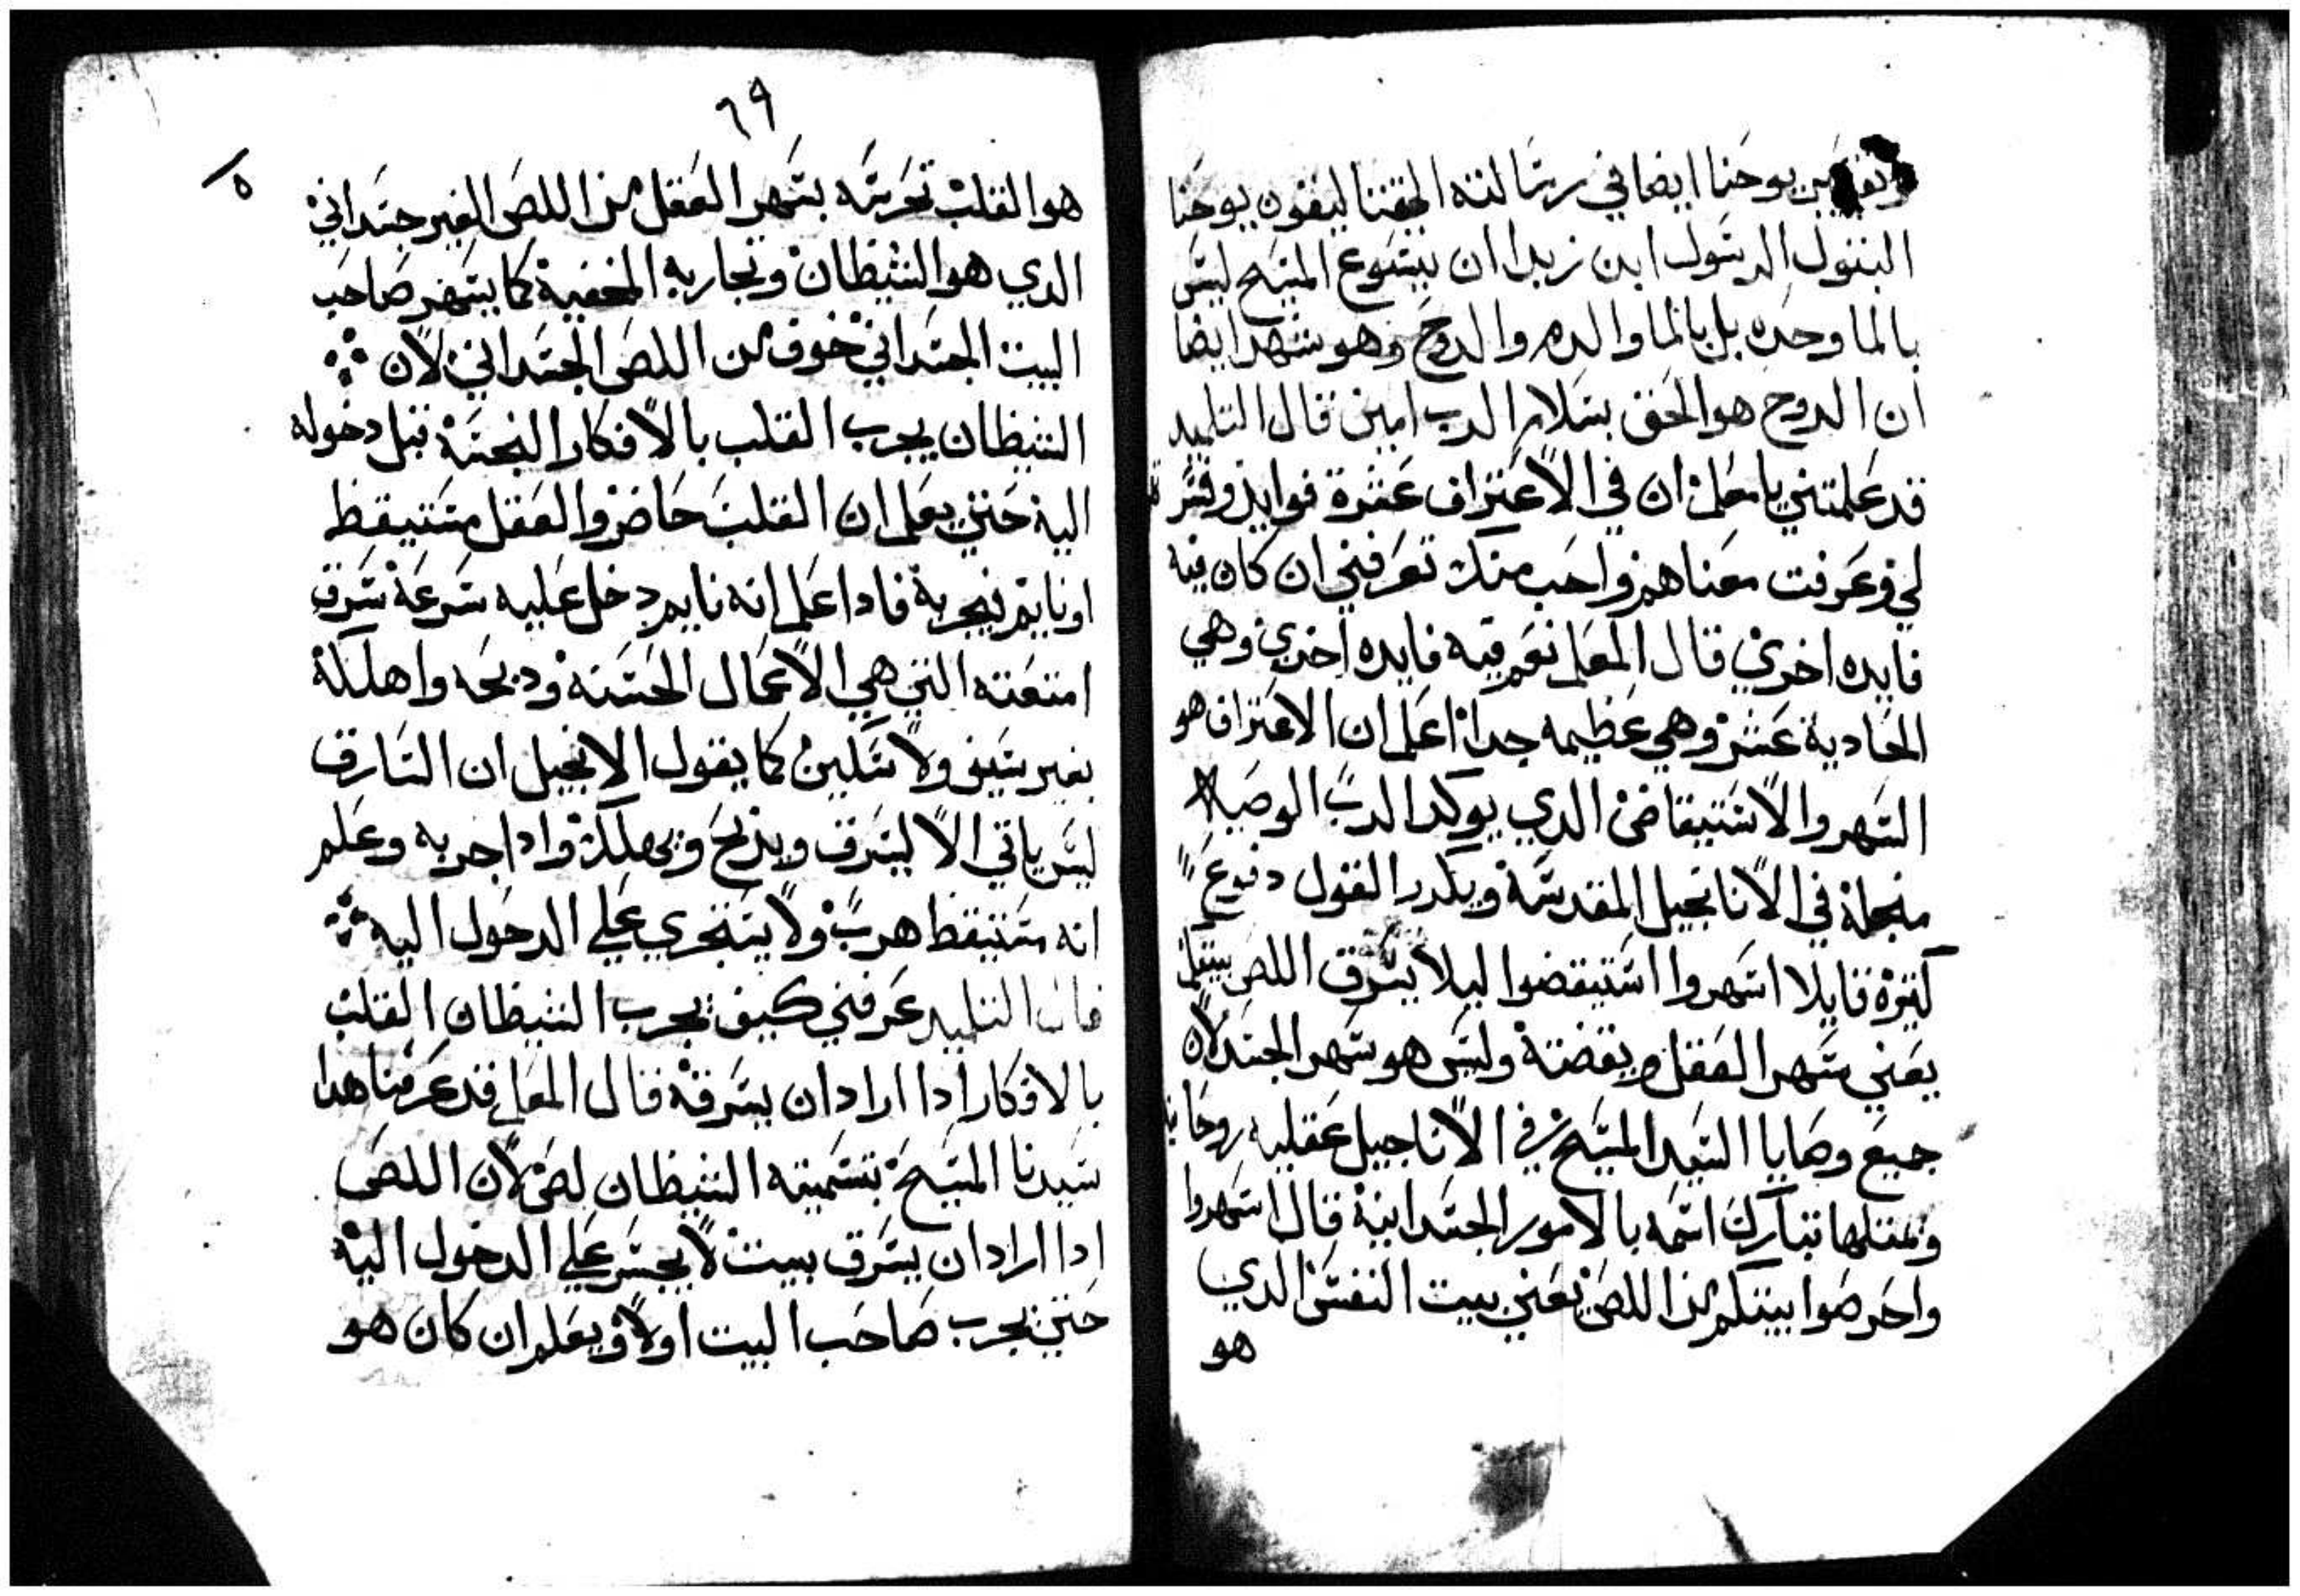 يوحنا ايضا في رسالته الحقنا ليقول يوحنا
البتول الرسول ابن زبدا ان يسوع المسيح ليس
بالما وحده بل بالما والدم والروح وهو شهد ايضا
ان الروح هو الحق بسلام الرب امين قال التلميد
قد علمتني يا معلم ان في الاعتراف عشرة فوايد وفسرتم
لي وعرفت معناهم واحب منك تعرفني ان كان فيه
فايده اخري قال المعلم نعم فيه فايده اخري وهي
الحادية عشر وهي عظيمه جدا اعلم ان الاعتراف هو
السهر والاستيقاض الدي يوكد الرب الوصيه
منجلة في الاناجيل المقدسة ويكرر القول دفوع
كتيرة قايلا اسهروا استيقضوا ليلا يسرق اللص بيتكم
يعني سهر العقل ويقضتة وليس هو سهر الجسد لان
جميع وصايا السيد المسيح في الاناجيل عقليه روحانيه
ونمتلها تبارك اسمه بالامور الجسدانية قال اسهروا
واحرصوا بيتكم من اللص يعني بيت النفس الدي
هو
٦٩
هو القلب تحرسه بسهر العقل من اللص الغير جسداني
الدي هو الشيظان وتجاربه المخفية كما يسهر صاحب
البيت الجسداني خوف من اللص الجسداني لان
الشيظان يجرب القلب بالافكار النجسة قبل دخوله
الية حتي يعلم ان القلب حاضر والعقل مستيقظ
او نايم بتجربة فادا علم انه نايم دخل عليه سرعة سرق
امتعته التي هي الاعمال الحسنه ودبحه واهلكة
بغير سيف ولا سكين كما يقول الانجيل ان السارق
ليس ياتي الا ليسرق ويدبح ويهلك وادا جربه وعلم
انه مستيقظ هرب ولا يتجري علي الدخول اليه
قال التلميد عرفني كيف يجرب الشيظان القلب
بالافكار ادا اراد ان يسرقة قال المعلم قد عرفنا هدا
سيدنا المسيح بتسميته الشيظان لص لان اللص
ادا اراد ان يسرق بيت لا يجسر علي الدخول الية
حتي يجرب صاحب البيت اولا ويعلم ان كان هو